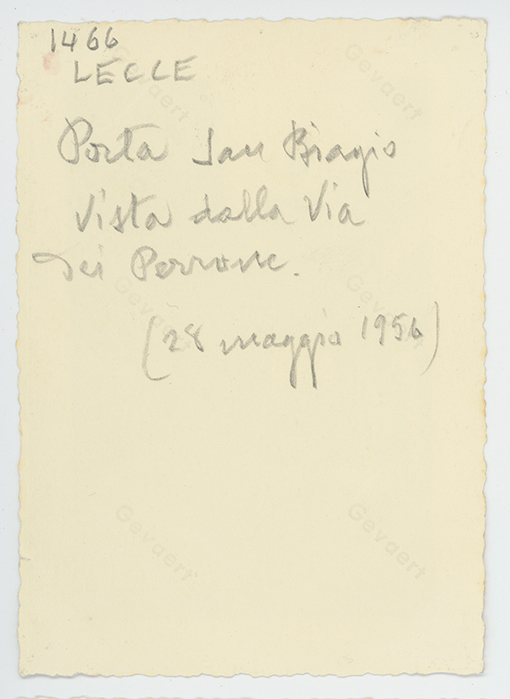 1466
LECCE
Porta San Biagio
vista dalla Via
dei Perrone.
(28 maggio 1956)
Gevaert
Gevaert
Gevaert
Gevaert
Gevaert
Gevaert